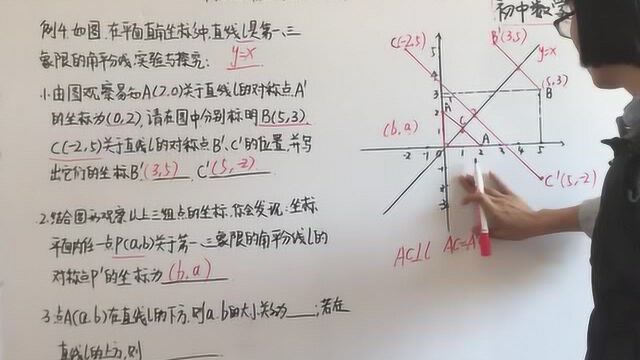 例4.如图,在平面直角坐标系中,直线l是第一、三
象限的角平分线.实验与探究: y=x
1.由图观察易知A(2,0)关于直线l的对称点A'
的坐标为(0,2),请在图中分别标明B(5,3)
C(-2,5)关于直线l的对称点B'、C'的位置,并写
出它们的坐标B'(3,5) C'(5,-2)
2.结合图形观察以上三组点的坐标,你会发现:坐标
平面内任一点P(a,b)关于第一、三象限的角平分线l的
对称点P'的坐标为(b,a)
3.点A(a,b)在直线l的下方,则a,b的大小关系为____;若在
直线l的上方,则____
初中数学
C(-2,5)
B'(3,5)
y=x
(5,3)
B
A'
(b,a)
C
A
-2 -1 0 1 2 3 4 5
C'(5,-2)
AC⊥l AC=A'